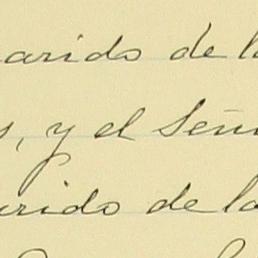 arido de la
s, y el Seño
arido de la